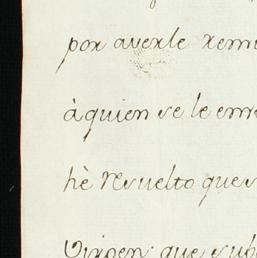 por averle remi
à quien se le enx
hè resuelto que s
Virgen: que sub